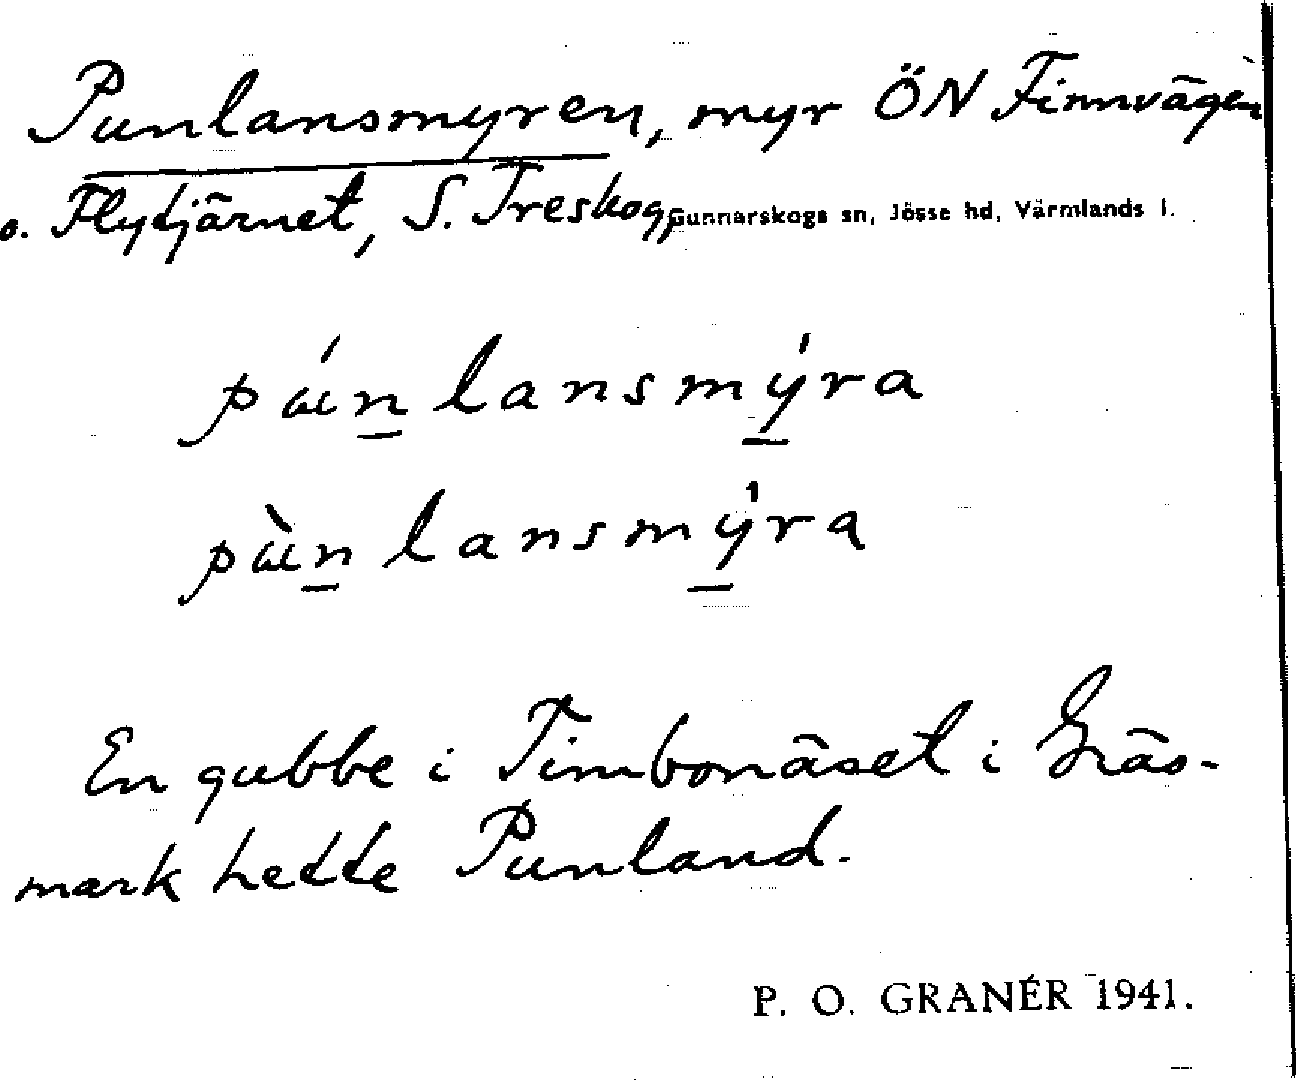 Punlansmyren, myr ÖN Finnvägen
o. Flytjärnet, S. Treskog, Gunnarskogs sn, Jösse hd, Värmlands l.
púnlansmýra
pùnlansmýra
En gubbe i Timbonäset i Gräs-
mark hette Punland.
P. O. GRANÉR 1941.